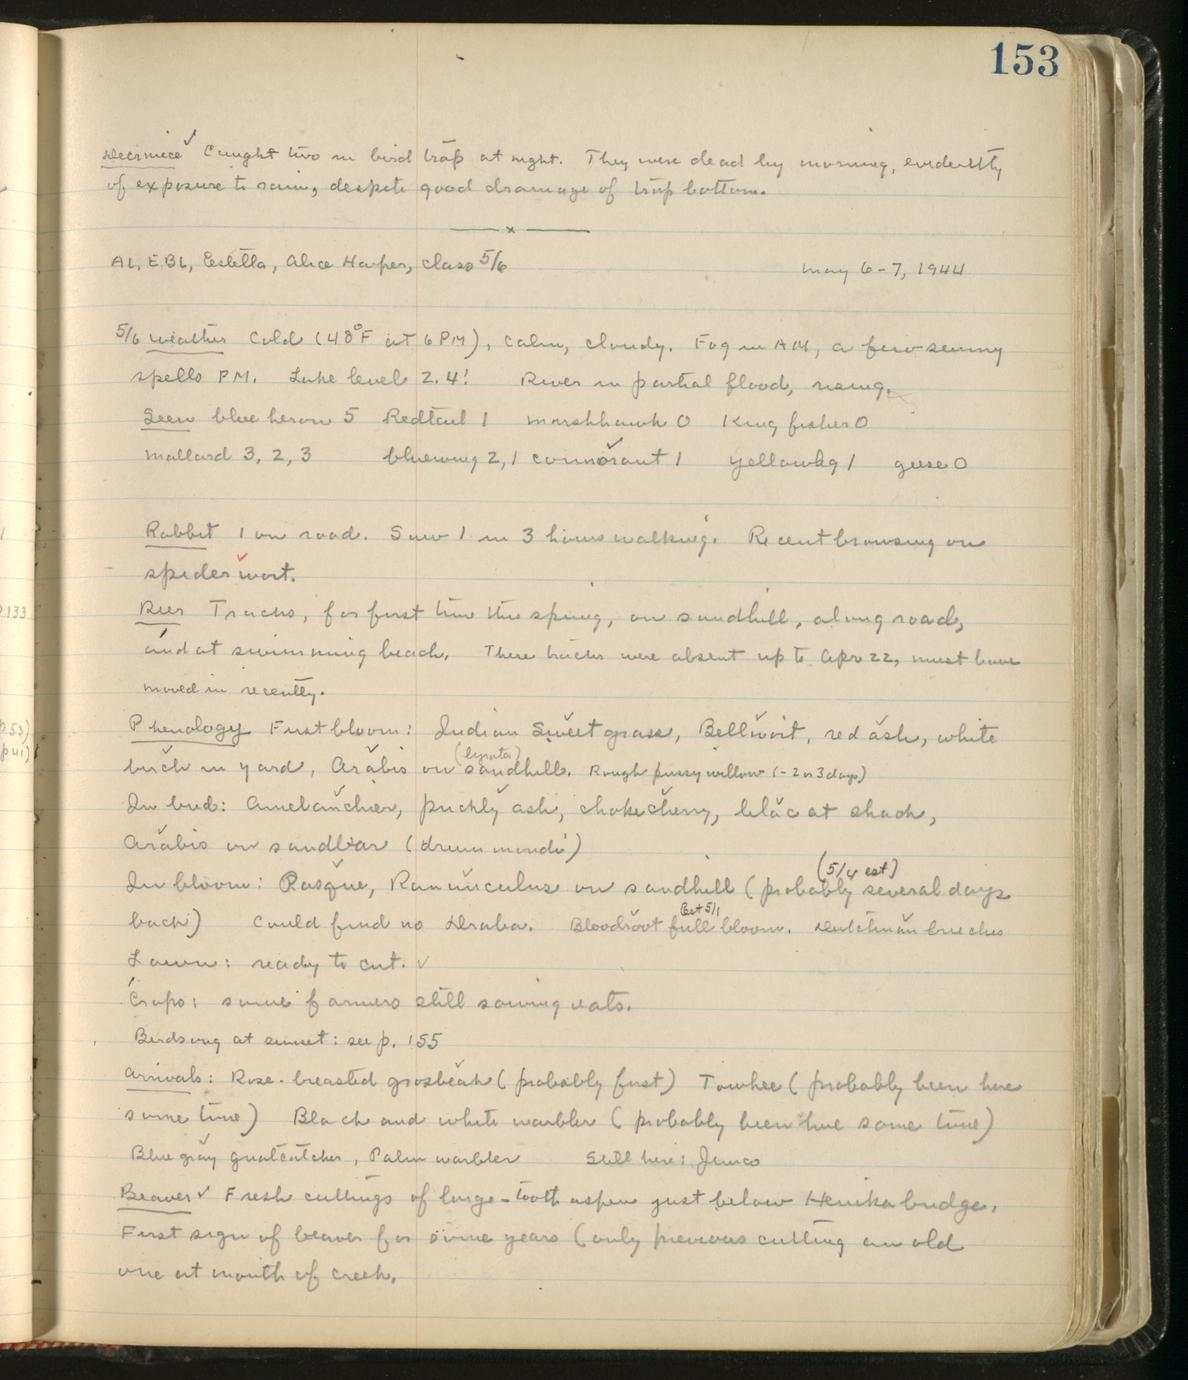 153
Deermice ✓ Caught two in bird trap at night. They were dead by morning, evidently
of exposure to rain, despite good drainage of trap bottom.
x
AL, EBL, Estella, Alice Harper, class 5/6 May 6-7, 1944
5/6 Weather Cold (48°F at 6 PM), calm, cloudy. Fog in AM, a few sunny
spells PM. Lake level 2.4! River in partial flood, rising.
Seen blue heron 5 Redtail 1 marshhawk 0 Kingfisher 0
mallard 3, 2, 3 bluewing 2, 1 cormorant 1 yellowleg 1 geese 0
Rabbit 1 on road. Saw 1 in 3 hours walking. Recent browsing on
spiderwort.
Deer Tracks, for first time this spring, on sandhill, along road,
and at swimming beach. These tracks were absent up to Apr 22, must have
moved in recently.
Phenology First bloom: Indian Sweet grass, Bellwort, red ash, white
birch in yard, Arabis (lyrata) on sandhill. Rough pussy willow (-2 or 3 days)
In bud: Amelanchier, prickly ash, chokecherry, lilac at shack,
Arabis on sandbar (drummondi)
In bloom: Pasque, Ranunculus on sandhill (probably several days (5/4 est)
back) Could find no Draba. Bloodroot full bloom. Est 5/1 Dutchman breeches
Lawn: ready to cut. ✓
Crops: some farmers still sowing oats.
Birdsong at sunset: see p. 155
Arrivals: Rose-breasted grosbeak (probably first) Towhee (probably been here
some time) Black and white warbler (probably been here some time)
Blue gray gnatcatcher, Palm warbler Still here: Junco
Beaver ✓ Fresh cuttings of large-tooth aspen just below Henika bridge.
First sign of beaver for some years (only previous cutting an old
one at mouth of creek.
133
p. 53)
p 41)